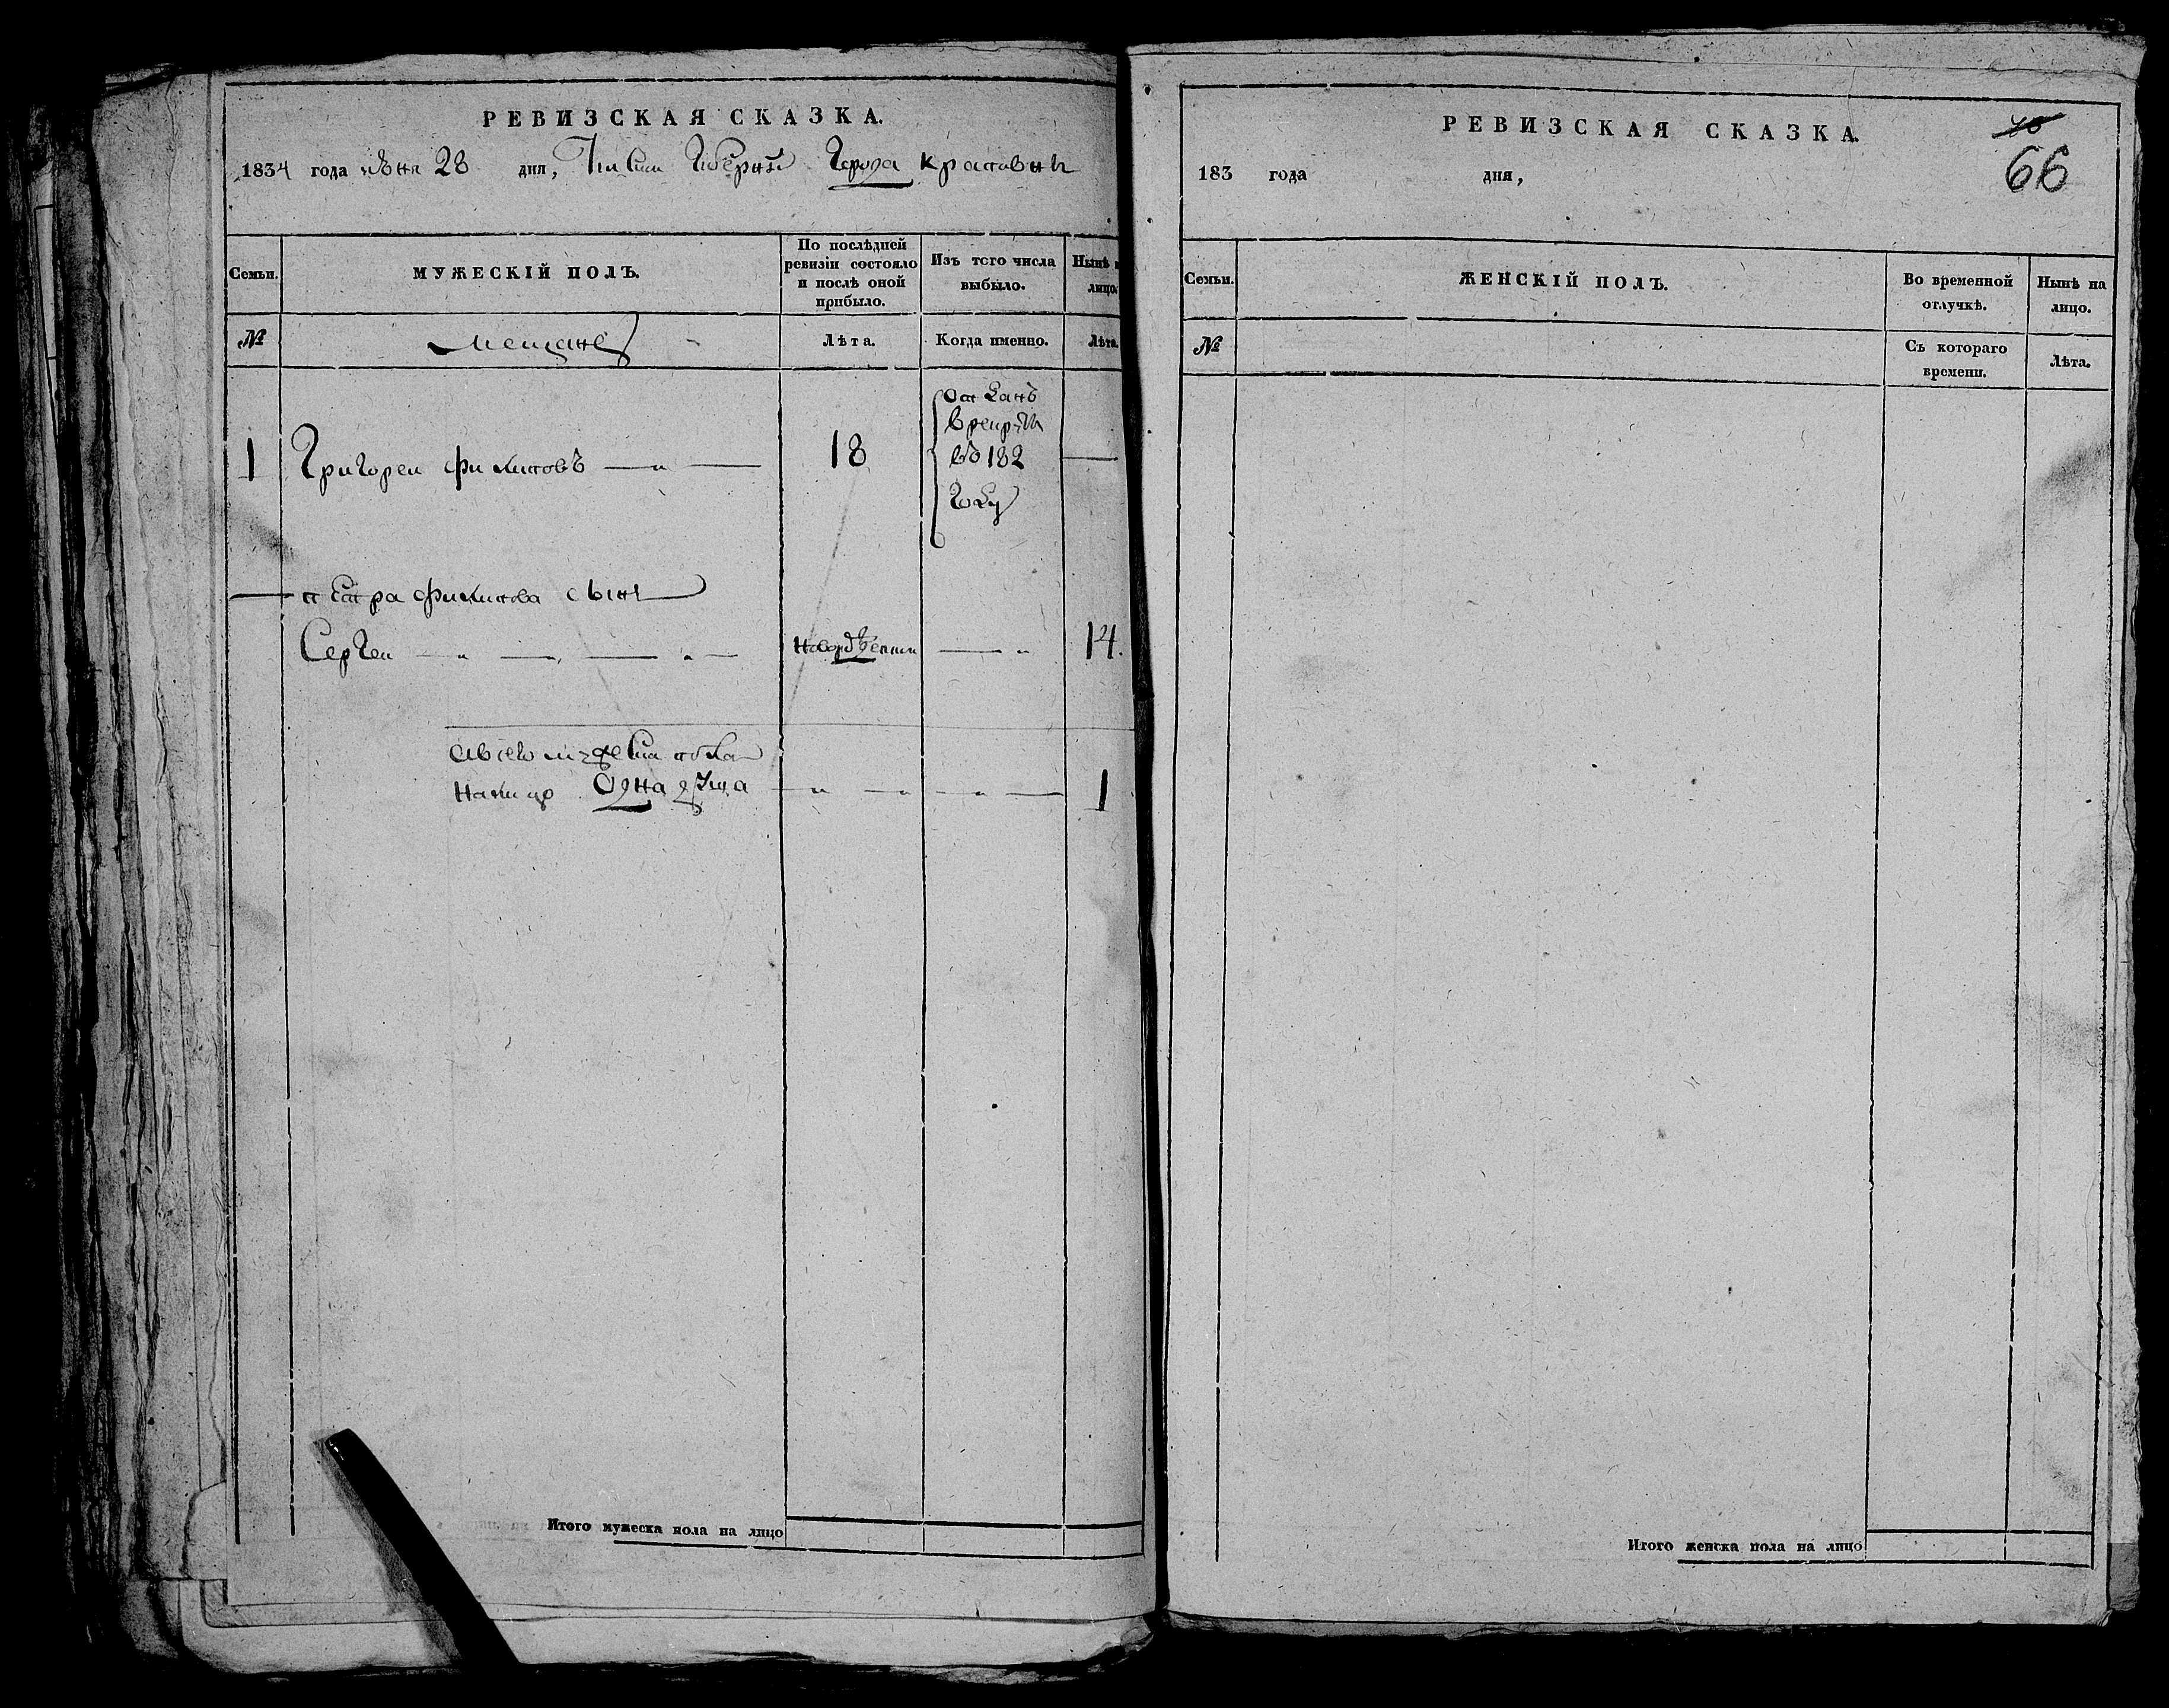 РЕВИЗСКАЯ СКАЗКА.
1834 года июня 28 дня, Губернии Города Крапивны
Семьи. МУЖЕСКІЙ ПОЛЪ. По послѣдней ревизіи состояло и послѣ оной прибыло. Изъ того числа выбыло. Нынѣ лицо.
№ мещане Лѣта. Когда именно. Лѣта.
1 Григореи Филиповъ 18
Отданъ
в рекруты
182
году
Петра Филипова сынъ
Сергеи 14.
мужеска пола
налицо Одна душа 1
Итого мужеска пола на лицо
РЕВИЗСКАЯ СКАЗКА.
66
183 года дня,
Семьи. ЖЕНСКІЙ ПОЛЪ. Во временной отлучкѣ. Нынѣ на лицо.
№ Съ котораго времени. Лѣта.
Итого женска пола на лицо